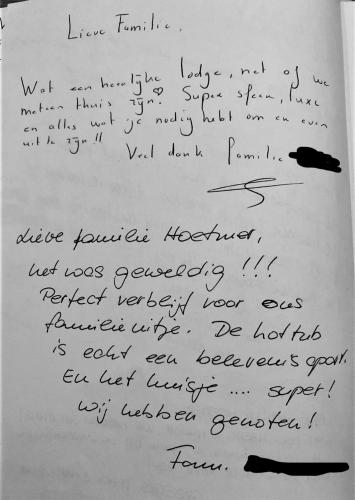 Lieve Familie,
Wat een heerlijke lodge, net of we
meteen thuis zijn! Super sfeer, luxe
en alles wat je nodig hebt om er even
uit te zijn!!
Veel dank familie
Lieve familie Hoetmer,
het was geweldig!!!
Perfect verblijf voor ons
familieuitje. De hottub
is echt een belevenis apart.
En het huisje .... super!
Wij hebben genoten!
Fam.